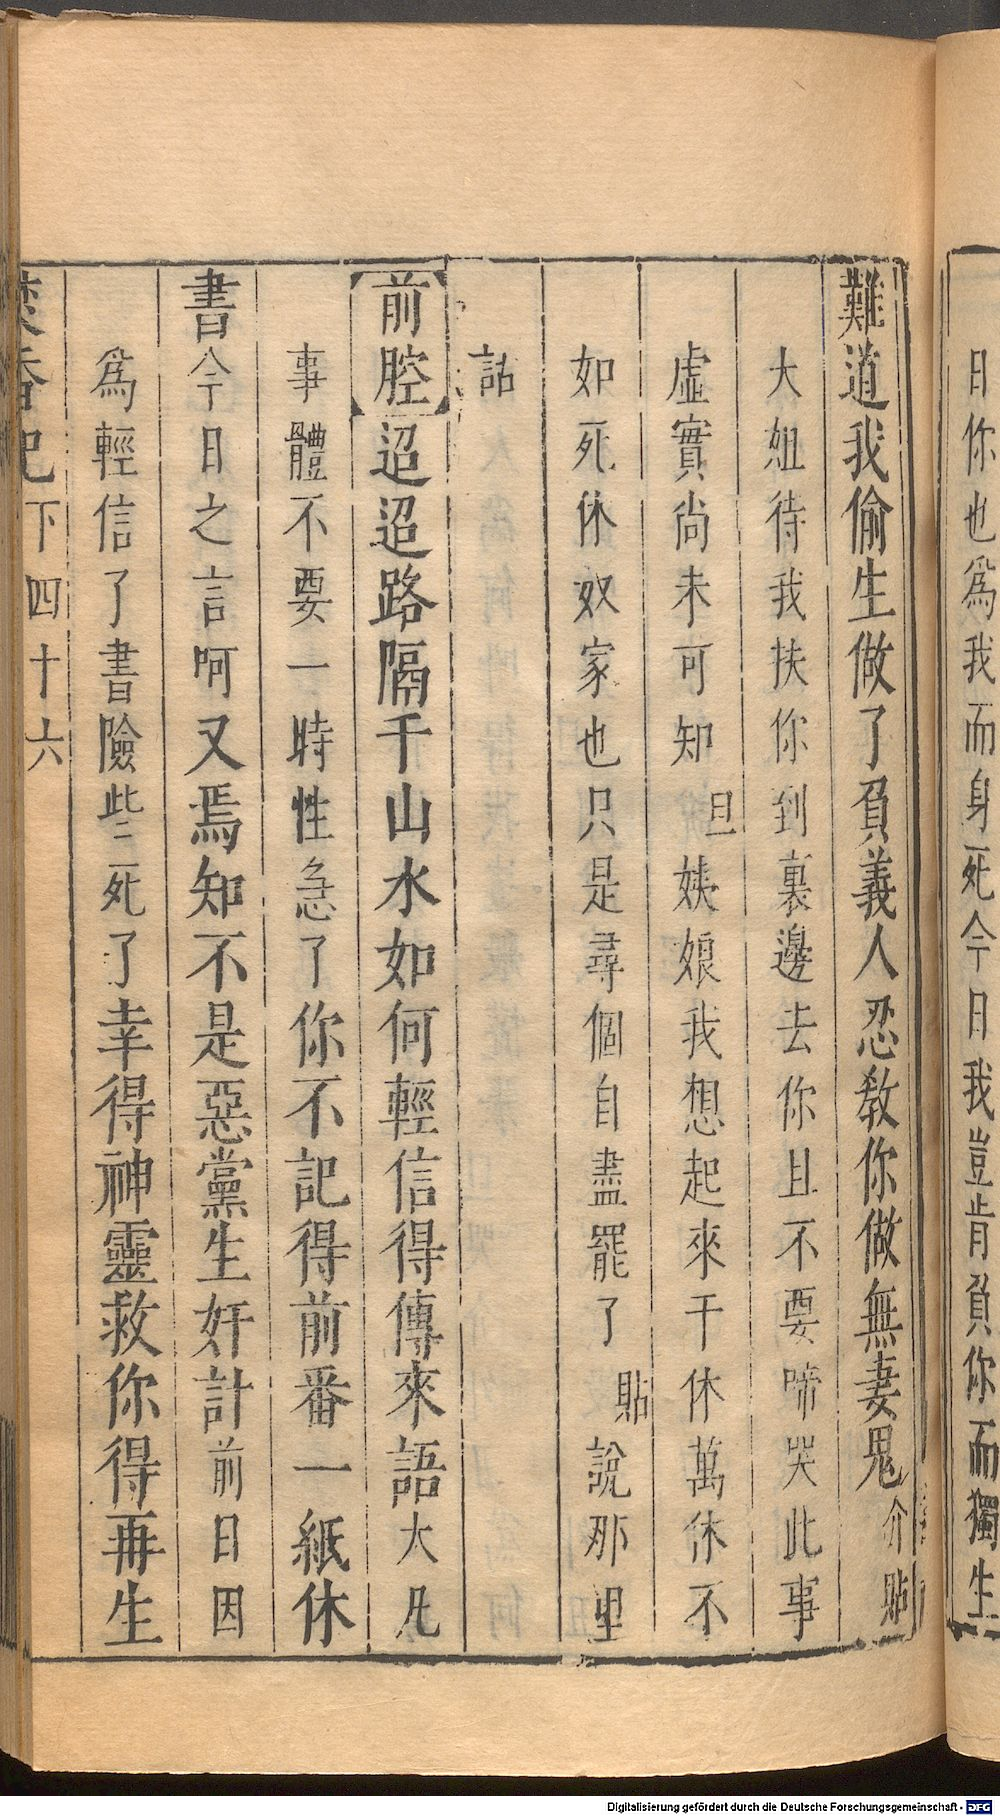 日你也爲我而身死今日我豈肯負你而獨生
難道我偷生做了負義人忍教你做無妻鬼介貼
大姐待我扶你到裏邊去你且不要啼哭此事
虛實尚未可知旦姨娘我想起來千休萬休不
如死休奴家也只是尋個自盡罷了貼說那里
話
前腔迢迢路隔千山水如何輕信得傳來語大凡
事體不要一時性急了你不記得前番一紙休
書今日之言呵又焉知不是惡黨生奸計前日因
爲輕信了書險些二死了幸得神靈救你得再生
焚香記下四十六
Digitalisierung gefördert durch die Deutsche Forschungsgemeinschaft - DFG